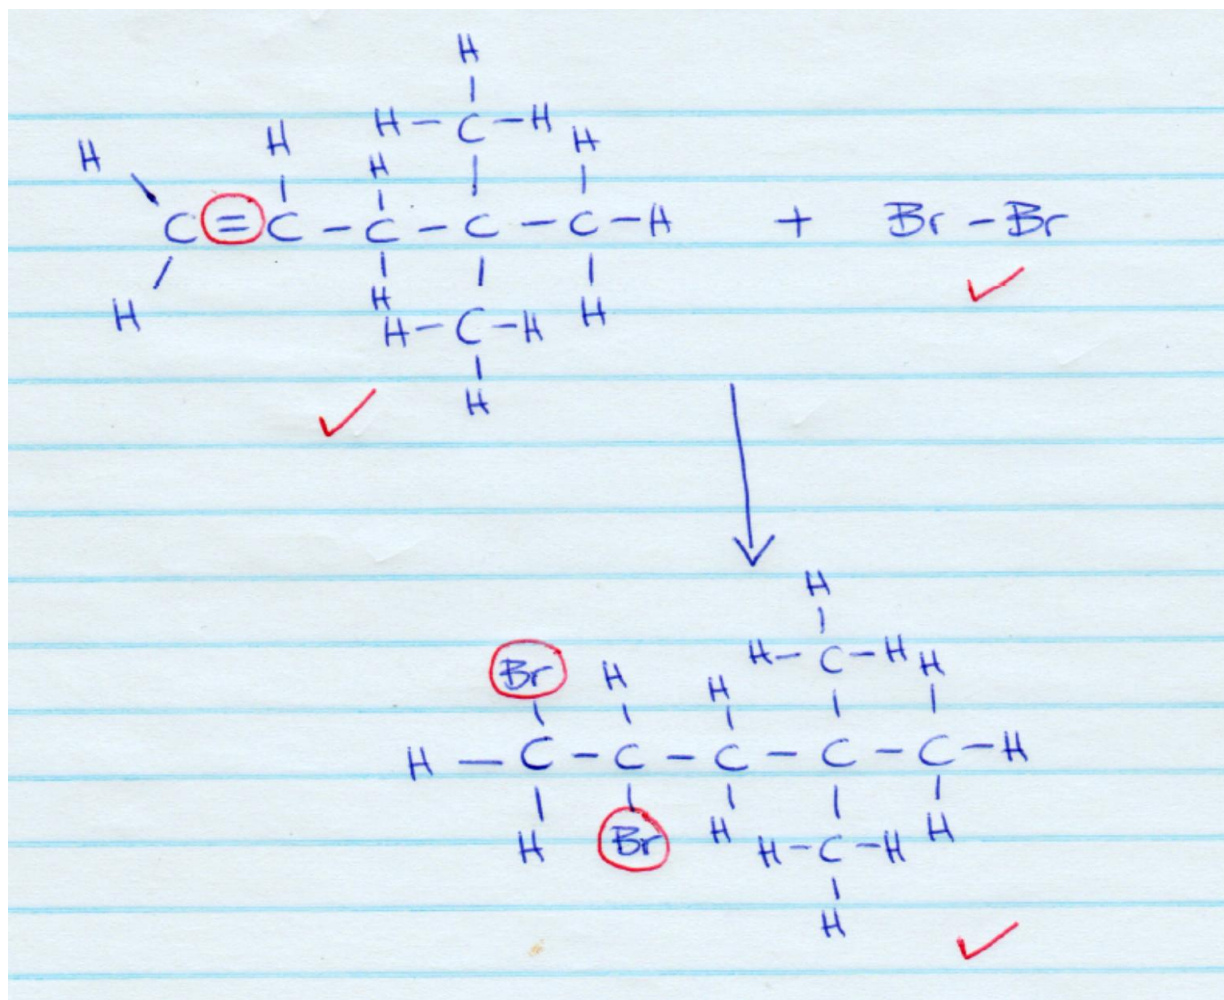 H
H – C – H
H H H H
C = C – C – C – C – H + Br – Br
H H H H
H – C – H
H
H
H – C – H
Br H H H
H – C – C – C – C – C – H
H Br H H
H – C – H
H